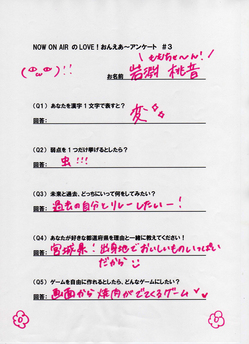 NOW ON AIR のLOVE！おんえあ～アンケート #3
\ももちゃ〜ん！/
(。・ω・。)!!
お名前 岩淵 桃音
(Q1) あなたを漢字1文字で表すと？
回答： 変
(Q2) 弱点を1つだけ挙げるとしたら？
回答： 虫!!!
(Q3) 未来と過去、どっちにいって何をしてみたい？
回答： 過去の自分とリレーしたいー！
(Q4) あなたが好きな都道府県を理由と一緒に教えてください！
回答： 宮城県！出身地でおいしいものいっぱい
だから
(Q5) ゲームを自由に作れるとしたら、どんなゲームにしたい？
回答： 画面から焼肉がでてくるゲーム